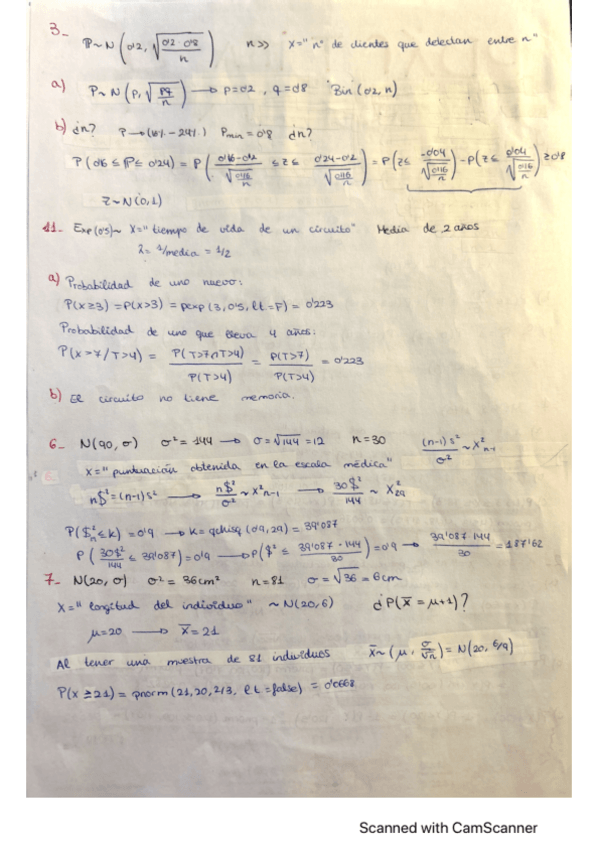 3_
P~N(0'2, √(0'2·0'8/n)) n>> X="nº de clientes que detectan entre n"
a) P~N(P, √(Pq/n)) → p=0'2, q=0'8 "Bin"(0'2, n)
b) ¿n? P→(16%-24%) Pmin=0'8 ¿n?
P(0'16 ≤ P ≤ 0'24) = P((0'16-0'2)/√(0'16/n) ≤ z ≤ (0'24-0'2)/√(0'16/n)) = P(z≤ -0'04/√(0'16/n)) - P(z≤ 0'04/√(0'16/n)) ≥ 0'8
Z~N(0,1)
11- Exp(0'5)~ X="tiempo de vida de un circuito" Media de 2 años
λ = 1/media = 1/2
a) Probabilidad de uno nuevo:
P(X≥3) = P(X>3) = pexp(3, 0'5, lt=F) = 0'223
Probabilidad de uno que lleva 4 años:
P(X>7/T>4) = P(T>7∩T>4)/P(T>4) = P(T>7)/P(T>4) = 0'223
b) El circuito no tiene memoria.
6_ N(90, σ) σ²=144 → σ=√144=12 n=30 (n-1)s²/σ² ~ X²n-1
X="puntuación obtenida en la escala médica"
n$²=(n-1)s² → n$²/σ² ~ X²n-1 → 30$²/144 ~ X²29
P($²n ≤ k) = 0'9 → k = qchisq(0'9, 29) = 39'087
P(30$²/144 ≤ 39'087) = 0'9 → P($² ≤ 39'087·144/30) = 0'9 → 39'087·144/30 = 187'62
7- N(20, σ) σ²=36cm² n=81 σ=√36=6cm
X="longitud del individuo" ~N(20,6) ¿P(X̄=μ+1)?
μ=20 → X̄=21
Al tener una muestra de 81 individuos X̄~(μ, σ/√n) = N(20, 6/9)
P(X≥21) = pnorm(21, 20, 2/3, lt=false) = 0'0668
Scanned with CamScanner